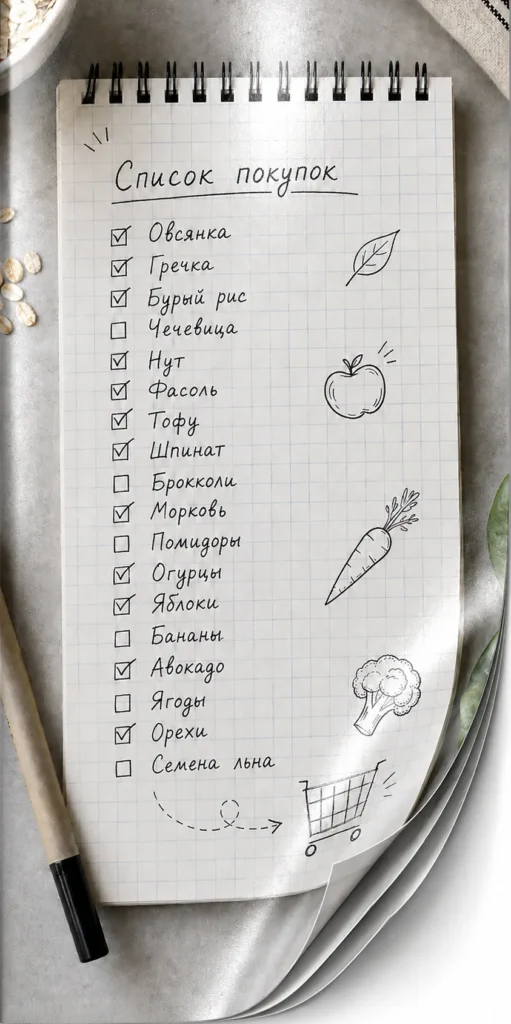 Список покупок
☑ Овсянка
☑ Гречка
☑ Бурый рис
☐ Чечевица
☑ Нут
☑ Фасоль
☑ Тофу
☑ Шпинат
☐ Брокколи
☑ Морковь
☐ Помидоры
☑ Огурцы
☑ Яблоки
☐ Бананы
☑ Авокадо
☐ Ягоды
☑ Орехи
☐ Семена льна